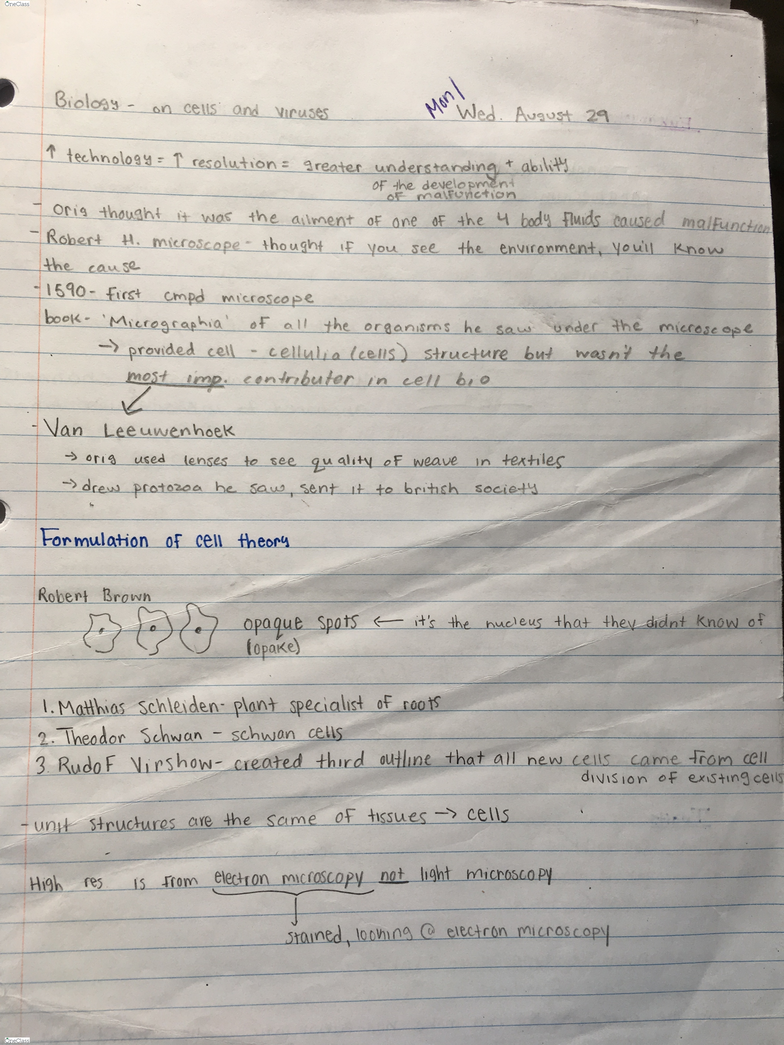 OneClass
Biology - on cells and viruses
Mon/ Wed. August 29
↑ technology = ↑ resolution = greater understanding + ability
of the development
of malfunction
- orig thought it was the ailment of one of the 4 body fluids caused malfunction
- Robert H. microscope - thought if you see the environment, you'll know
the cause
- 1590 - first cmpd microscope
book - 'Micrographia' of all the organisms he saw under the microscope
→ provided cell - cellulia (cells) structure but wasn't the
most imp. contributor in cell bio
- Van Leeuwenhoek
→ orig used lenses to see quality of weave in textiles
→ drew protozoa he saw, sent it to british society
Formulation of cell theory
Robert Brown
opaque spots ← it's the nucleus that they didnt know of
(opake)
1. Matthias Schleiden - plant specialist of roots
2. Theodor Schwan - schwan cells
3. Rudof Virshow - created third outline that all new cells came from cell
division of existing cells
- unit structures are the same of tissues → cells
High res is from electron microscopy not light microscopy
stained, looking @ electron microscopy
OneClass